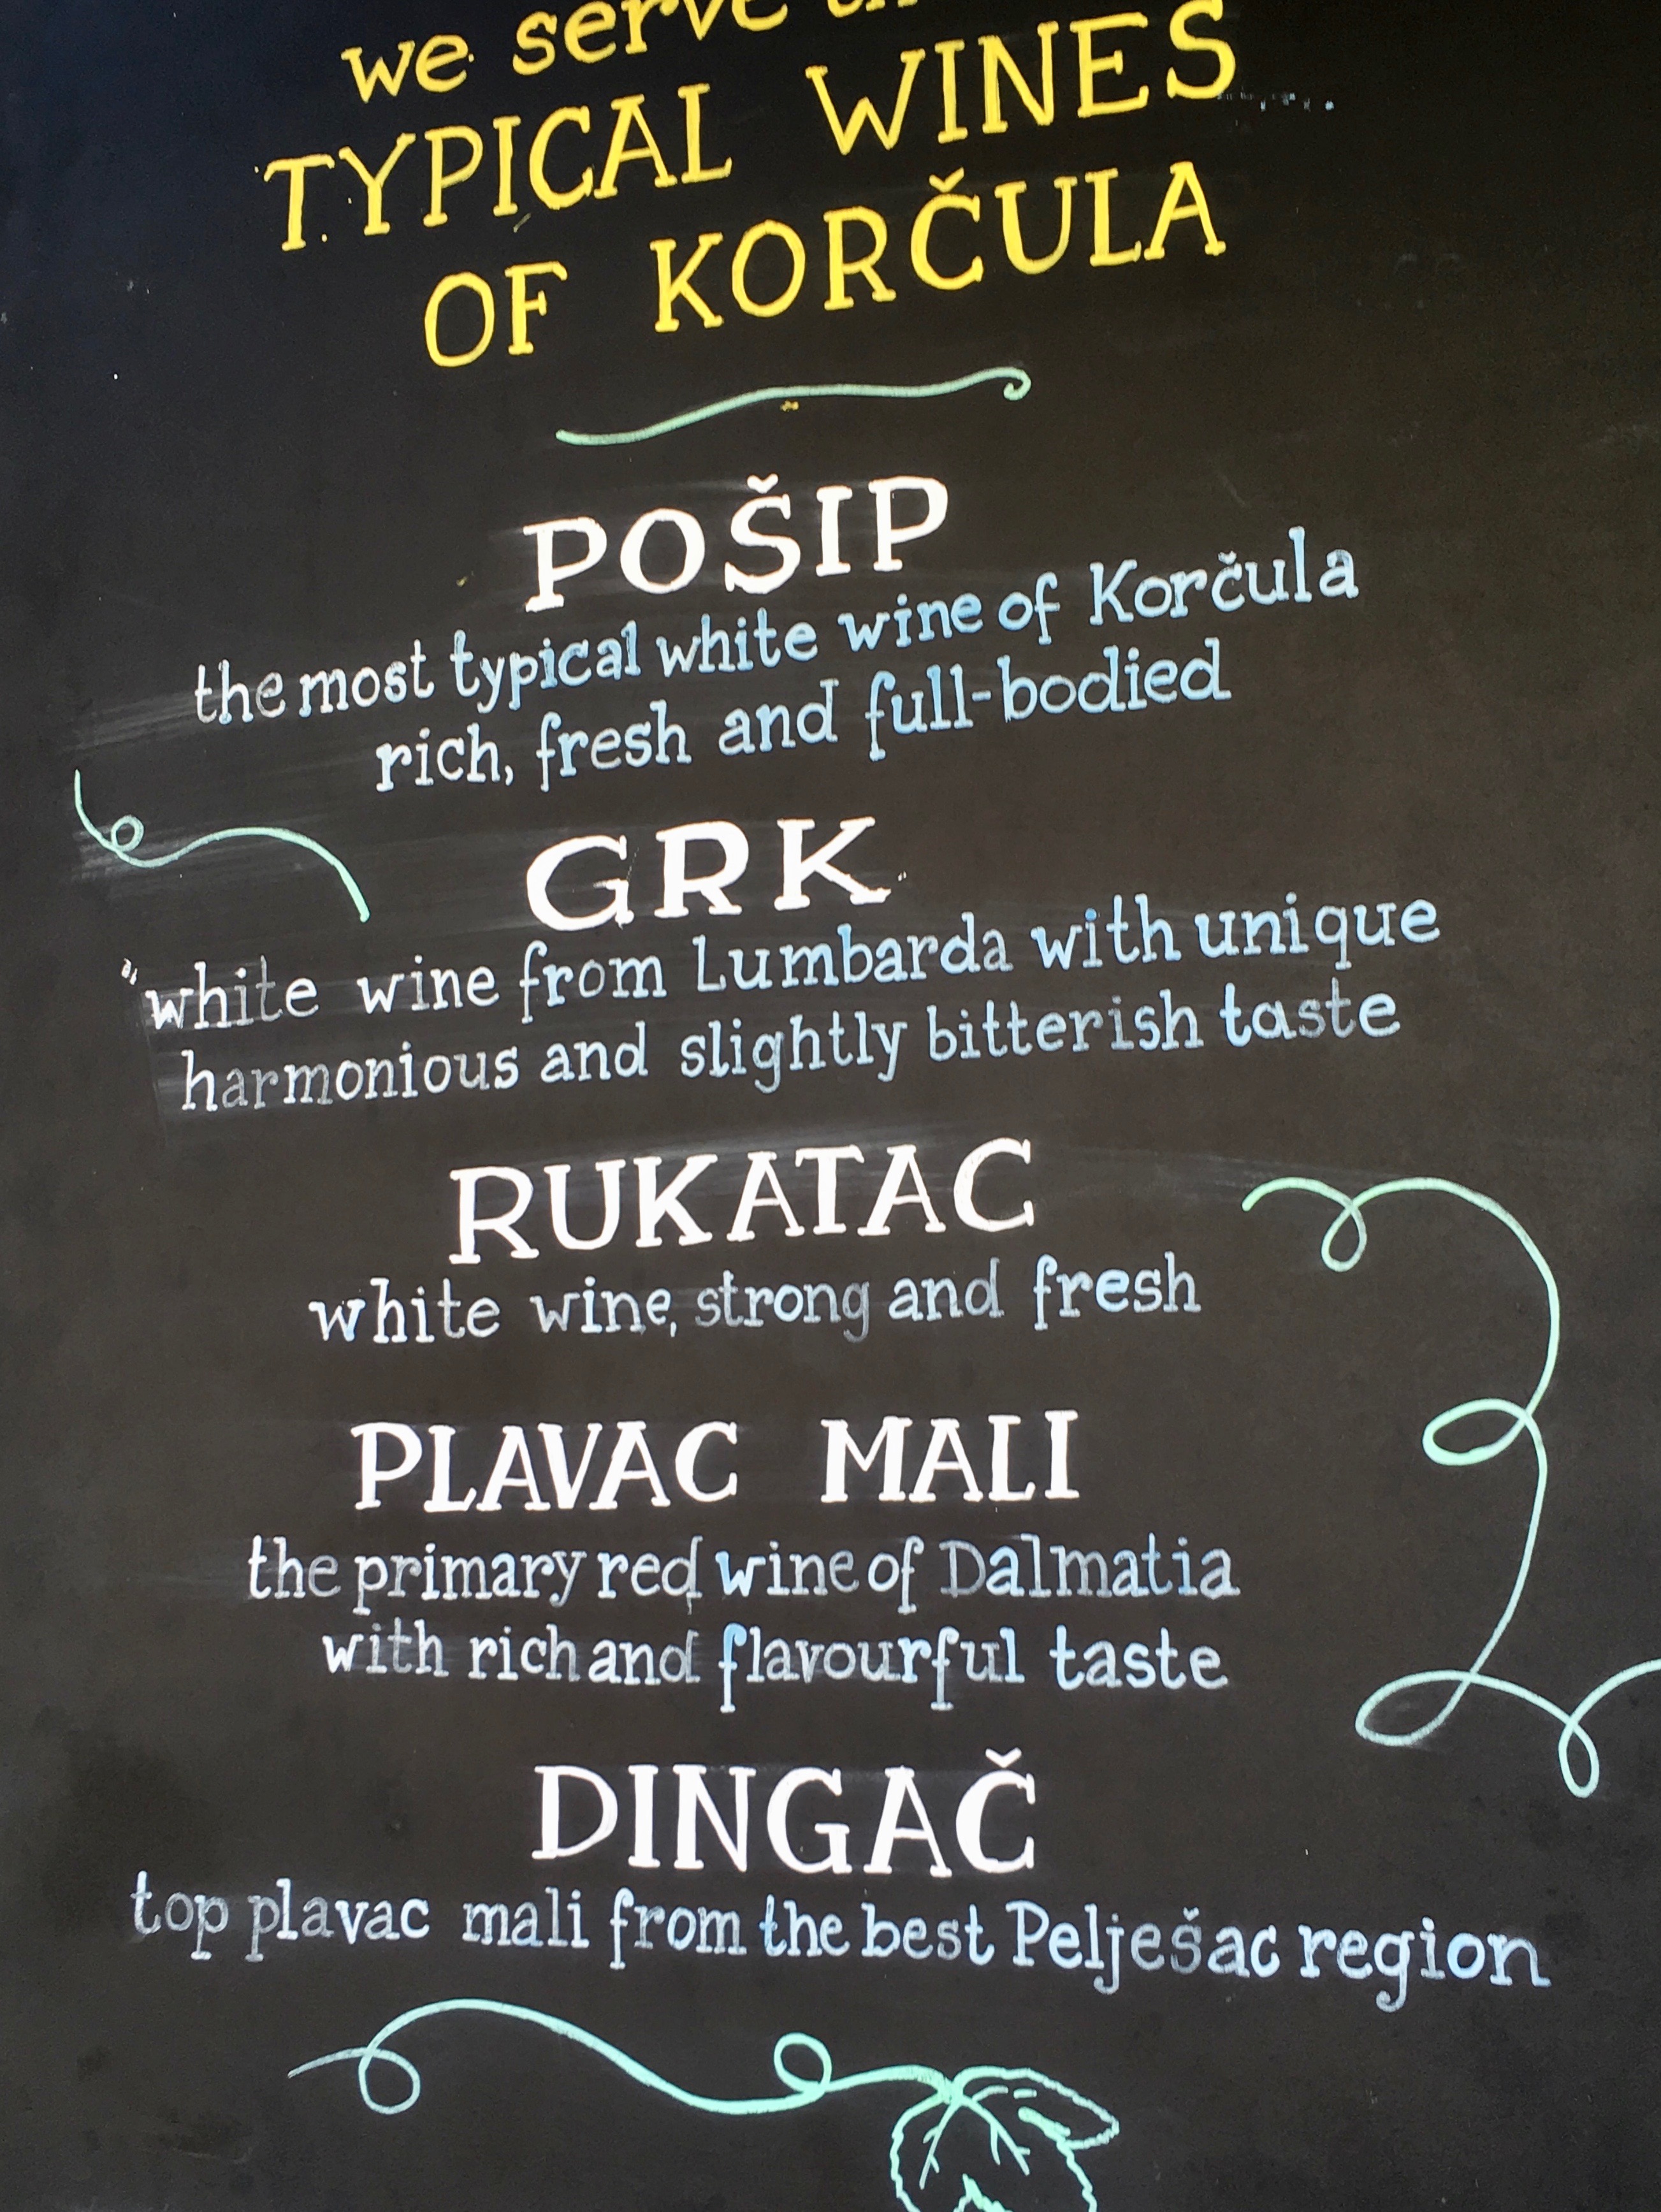 we serve
TYPICAL WINES
OF KORČULA
POŠIP
the most typical white wine of Korčula
rich, fresh and full-bodied
GRK
white wine from Lumbarda with unique
harmonious and slightly bitterish taste
RUKATAC
white wine, strong and fresh
PLAVAC MALI
the primary red wine of Dalmatia
with rich and flavourful taste
DINGAČ
top plavac mali from the best Pelješac region